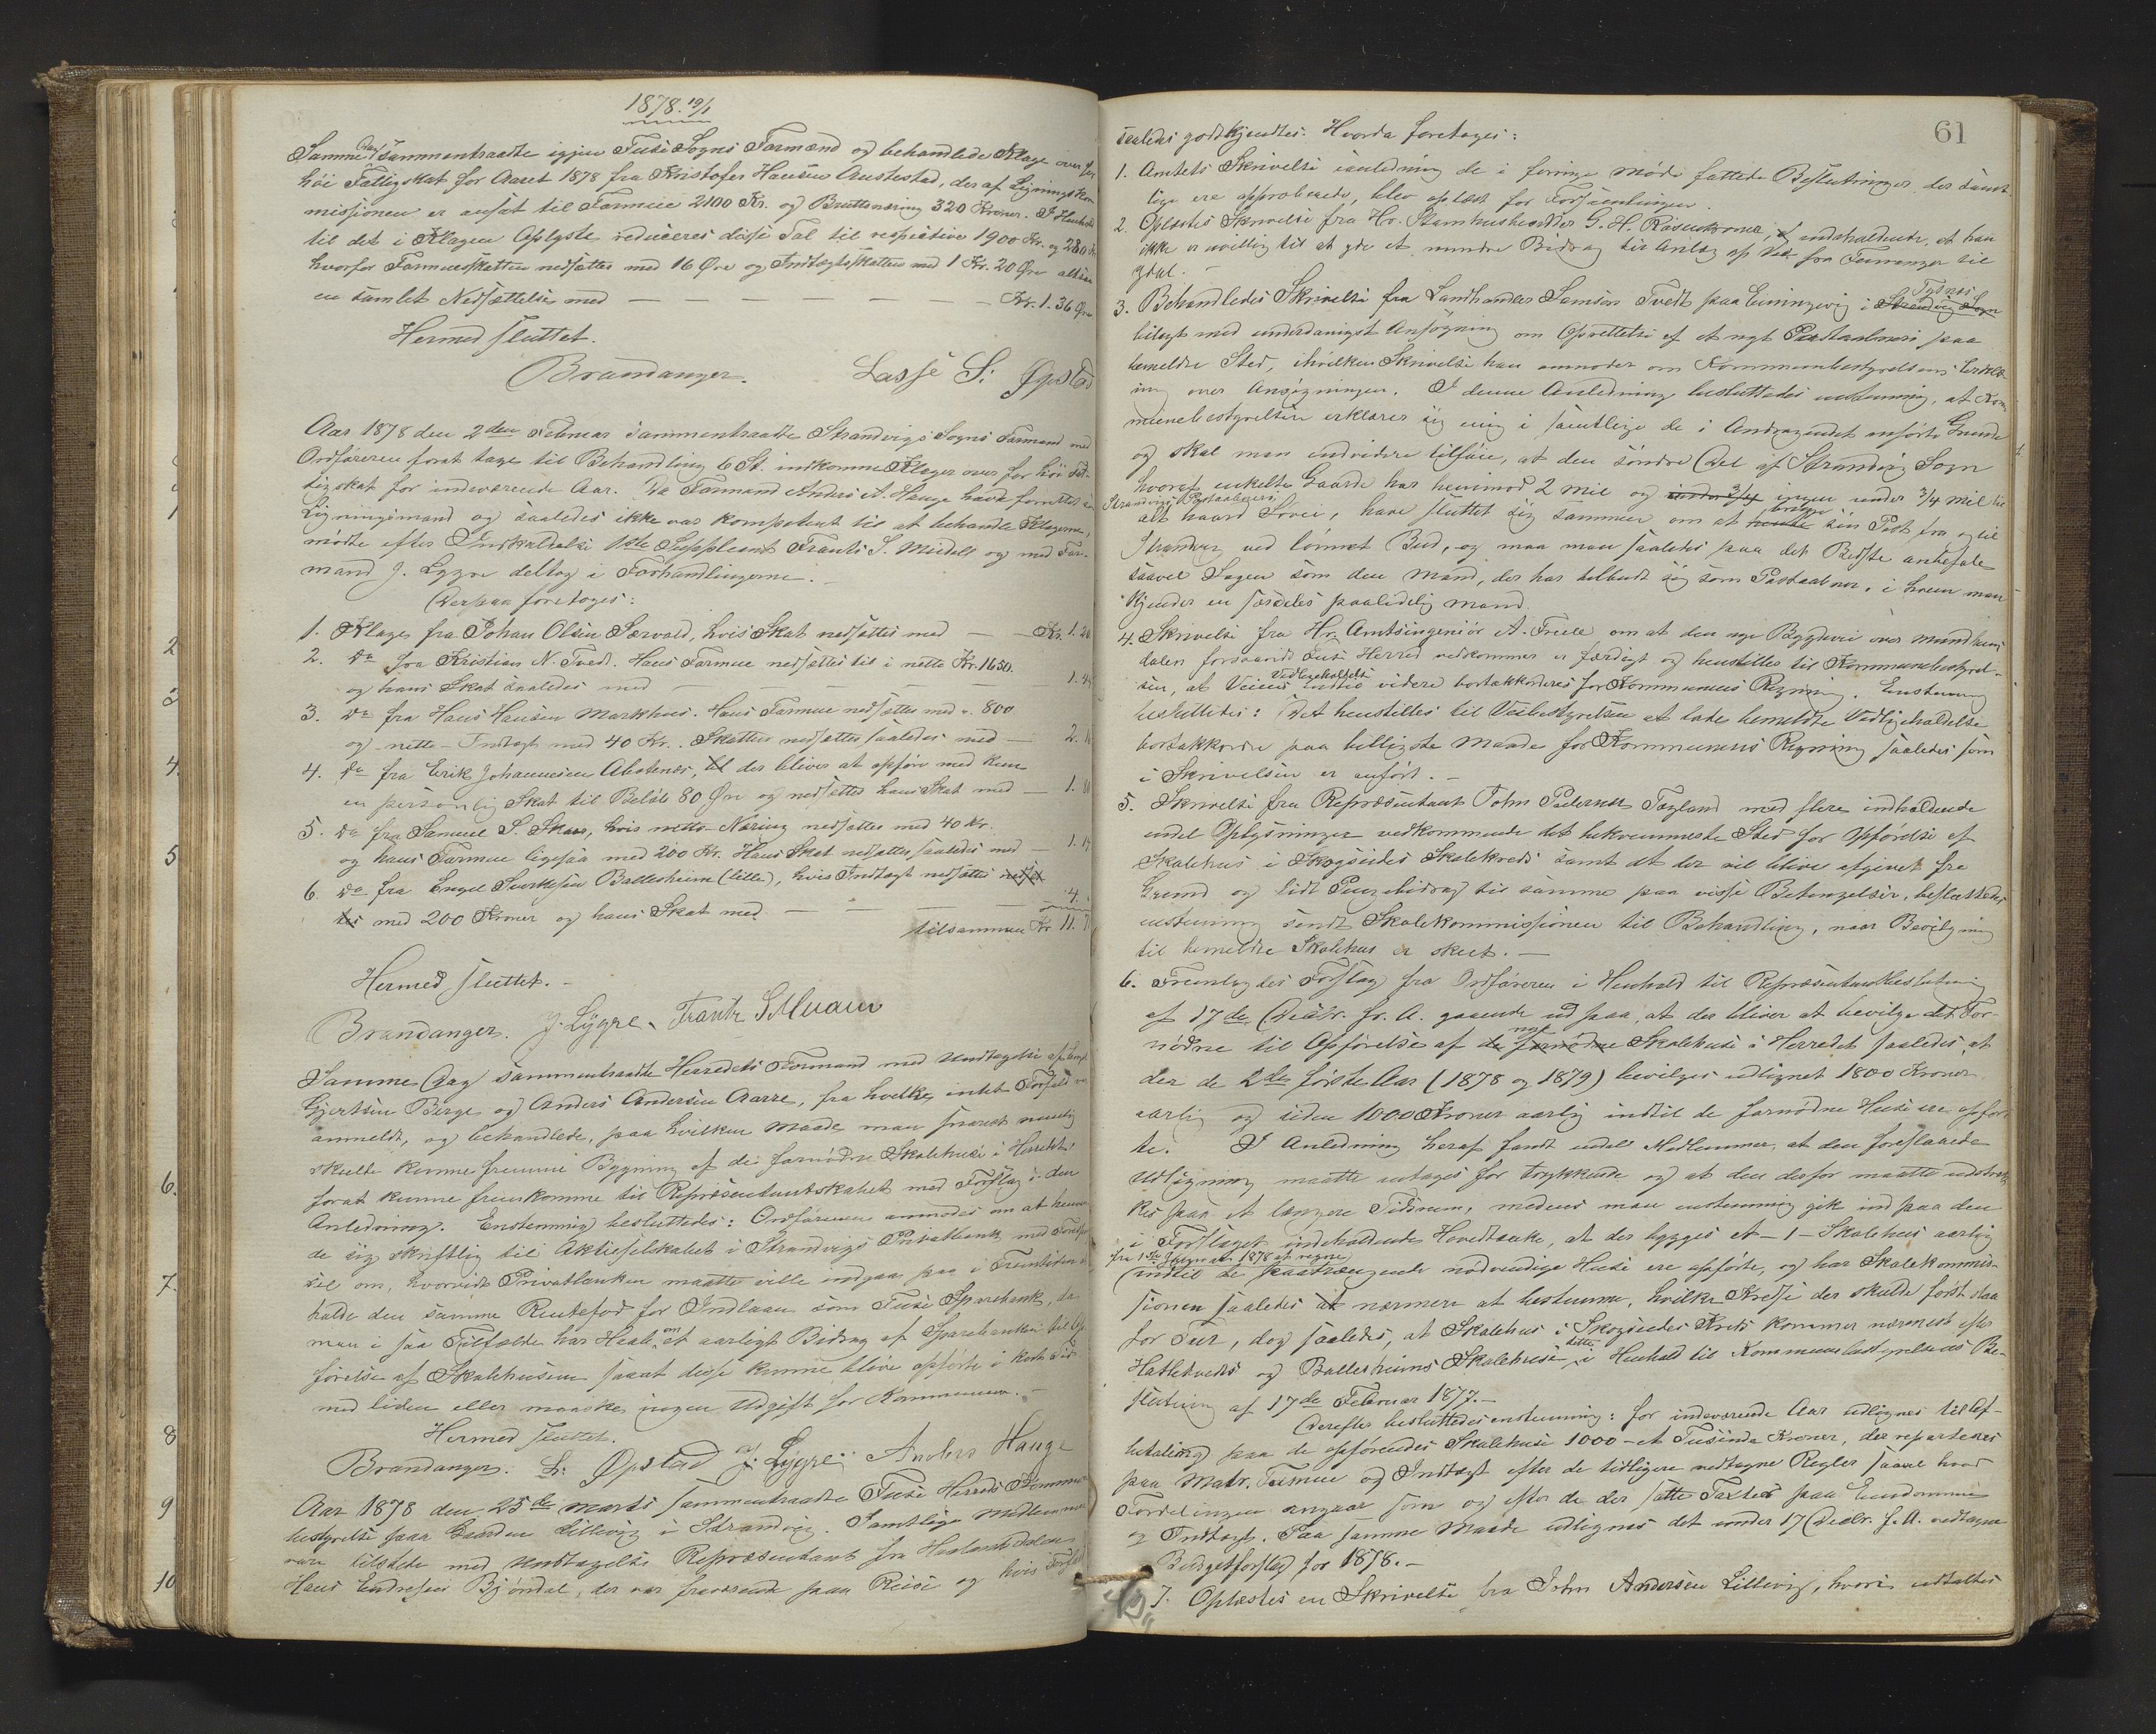 1878. 19/1
Samme Dag sammentraadte igjen Fuse Sogns Formænd og behandlede Klage over for
høi Fattigskat for Aaret 1878 fra Kristofer Hansen Austestad, der af Ligningskom
missionen er ansat til Formue 2100 Kr. og Bruttonæring 320 Kroner. I Henhold
til det i Klagen Oplyste reduceres disse Tal til respective 1900 Kr. og 280 Kr
hvorfor Formuesskatten nedsættes med 16 Øre og Indtægtsskatten med 1 Kr. 20 Øre altsaa
en samlet Nedsættelse med — — — — — — Kr. 1.36 Øre
Hermed sluttet.
Brandanger. Lasse S. Øpstad
Aar 1878 den 2den Februar sammentraadte Strandvigs Sogns Formænd med
Ordføreren forat tage til Behandling 6 St. indkomne Klager over for høi Fat-
tigskat for indeværende Aar. Da Formand Anders A. Hauge havde forrettet som
Ligningsmand og saaledes ikke var kompetent til at behandle Klagerne,
mødte efter Indkaldelse 1ste Suppleant Frants S. and med For-
mand J. Lygre deltog i Forhandlingerne. —
Derpaa foretoges:
1. Klage fra Johan Olsen Sørvold, hvis Skat nedsættes med — — Kr. 1.20
2. Do fra Kristian N. Tvedt. Hans Formue nedsættes til i netto Kr. 1650.
og hans Skat saaledes med — — — — 1.
3. Do fra Hans Hansen Markhus. Hans Formue nedsættes med " 800
og netto-Indtægt med 40 Kr. Skatten nedsættes saaledes med — 2.
4. Do fra Erik Johannesen Alvetnes, til der bliver at opføre med kun
en personlig Skat til Beløb 80 Øre og nedsættes hans Skat med — 1.
5. Do fra Samuel S. Skaar, hvis netto-Næring nedsættes med 40 Kr.
og hans Formue ligesaa med 200 Kr. Hans Skat nedsættes saaledes med — 1.
6. Do fra Engel Baltesheim (lille), hvis Indtægt nedsættes
med 200 Kroner og hans Skat med — — — 4.
tilsammen Kr 11.
Hermed sluttet. —
Brandanger. J. Lygre. Frantz S
Samme Dag sammentraadte Herredets Formænd med Undtagelse af
Gjertsen Berge og Anders Andersen Aarre, fra hvilke intet Forfald var
anmeldt, og behandlede, paa hvilken Maade man snarest mulig
skulde kunne fremme Bygning af de fornødne Skolehuse i Herredet
forat kunne fremkomme til Repræsentantskabet med Forslag i den
Anledning. Enstemmig besluttedes: Ordføreren anmodes om at henven
de sig skriftlig til Aktieselskabet i Strandvigs Privatbank med Forespørg
sel om, hvorvidt Privatbanken maatte ville indgaa paa i Fremtiden at
holde den samme Rentefod for Indlaan som Fuse Sparebank, da
man i saa Tilfælde har Haab om et aarligt Bidrag af Sparebanken til Op
førelse af Skolehusene saaat disse kunne blive opførte i kort Tid
med liden eller maaske ingen Udgift for Kommunen. —
Hermed sluttet.
Brandanger. L. Øpstad J. Lygre. Anders Hauge
Aar 1878 den 25de Marts sammentraadte Fuse Herreds Kommune
bestyrelse paa Gaarden Lillevig i Strandvig. Samtlige Medlemmer
vare tilstede med Undtagelse Repræsentant fra
Hans Endresen Bjørndal, der var fraværende paa Reise og hvis Forfald
61
saaledes godtkjendtes. Hvorda foretoges:
1. Amtets Skrivelse ianledning de i forrige Møde fattede Beslutninger, der samt
lige ere approberede, blev oplæst for Forsamlingen.
2. Oplæstes Skrivelse fra Hr. Stamhusbesidder G. H. Rosenkrone, indeholdende, at han
ikke er uvillig til at yde et mindre Bidrag til Anlæg af Vei fra Femanger til
Ydal. —
3. Behandledes Skrivelse fra Landhandler Samson Tvedt paa Enningevig i Strandvig Sogn Tysnæs
bilagt med underdanigst Ansøgning om Oprettelse af et nyt Postaabneri paa
bemeldte Sted, ihvilken Skrivelse han anmoder om Kommunebestyrelsens Erklæ-
ring over Ansøgningen. I denne Anledning besluttedes enstemmig, at Kom-
munebestyrelsen erklærer sig enig i samtlige de i Andragendet anførte Grunde
og skal man endvidere tilføie, at den søndre Del af Strandvig Sogn
hvoraf enkelte Gaarde har henimod 2 Mil og under 3/4 ingen under 3/4 Mil til
Strandvigs Postaabneri
alt haard Sovei, have sluttet sig sammen om at hente bringe sin Post fra og til
Strandvig ved lønnet Bud, og maa man saaledes paa det Bedste anbefale
saavel Sagen som den Mand, der har tilbudt sig som Postaabner, i hvem man
kjender en særdeles paalidelig Mand.
4. Skrivelse fra Hr. Amtsingeniør A. Friele om at den nye Bygdevei over Mundheims
dalen forsaavidt Fuse Herred vedkommer er færdigt og henstilles til Kommunebestyrel-
sen, at Veiens Vedligeholdelse videre bortakkorderes for Kommunens Regning. Enstemmig
besluttedes: Det henstilles til Veibestyrelsen at lade bemeldte Vedligeholdelse
bortakkordere paa billigste Maade for Kommunens Regning saaledes som
i Skrivelsen er anført. —
5. Skrivelse fra Repræsentant John Pedersen Tægland med flere indholdende
endel Oplysninger vedkommende det bekvemmeste Sted for Opførelse af
Skolehus i Skogseides Skolekreds samt at der vil blive afgivet fri
Grund og lidt Pengebidrag til samme paa visse Betingelser, besluttedes
enstemmig sendt Skolekommissionen til Behandling, naar Bevilgning
til bemeldte Skolehus er skeet. —
6. Fremlagdes Forslag fra Ordføreren i Henhold til Repræsentantbeslutning
af 17de Decbr. f. A. gaaende ud paa, at der bliver at bevilge det For-
nødne til Opførelse af de fornødne nye Skolehuse i Herredet saaledes at
der de 2de første Aar (1878 og 1879) bevilges udlignet 1800 Kroner
aarlig og siden 1000 Kroner aarlig indtil de fornødne Huse ere opfør
te. I Anledning heraf fandt endel Medlemmer, at den foreslaaede
Udligning maatte antages for trykkende og at den derfor maatte udstræk
kes paa et længere Tidsrum, medens man enstemmig gik ind paa den
i Forslaget indeholdende Hovedtanke, at der bygges et – 1 – Skolehus aarlig
fra 1ste Januar 1878 at regne
(indtil de paatrængende nødvendige Huse ere opførte, og har Skolekommis-
sionen saaledes at nærmere at bestemme, hvilke Kredse der skulde først staa
for Tur, dog saaledes, at Skolehus i Skogseides Kreds kommer nærmest efter
Hatletvedts og Baltesheims Skolehuse, dette i Henhold til Kommunebestyrelsens Be-
slutning af 17de Februar 1877. —
Derefter besluttedes enstemmig: For indeværende Aar udlignes til Af-
betaling paa de opførendes Skolehuse 1000 – et Tusinde Kroner, der reparteres
paa Matr. Formue og Indtægt efter de tidligere vedtagne Regler saavel hvad
Fordelingen angaar som og efter de der satte Taxter paa Eiendomme
og Indtægt. Paa samme Maade udlignes det under 17 Decbr. f. A. vedtagne
Budgetforslag for 1878. —
7. Oplæstes en Skrivelse fra John Andersen Lillevig, hvori udtaltes
2
3
4.
5
6.
7.
8
9
10